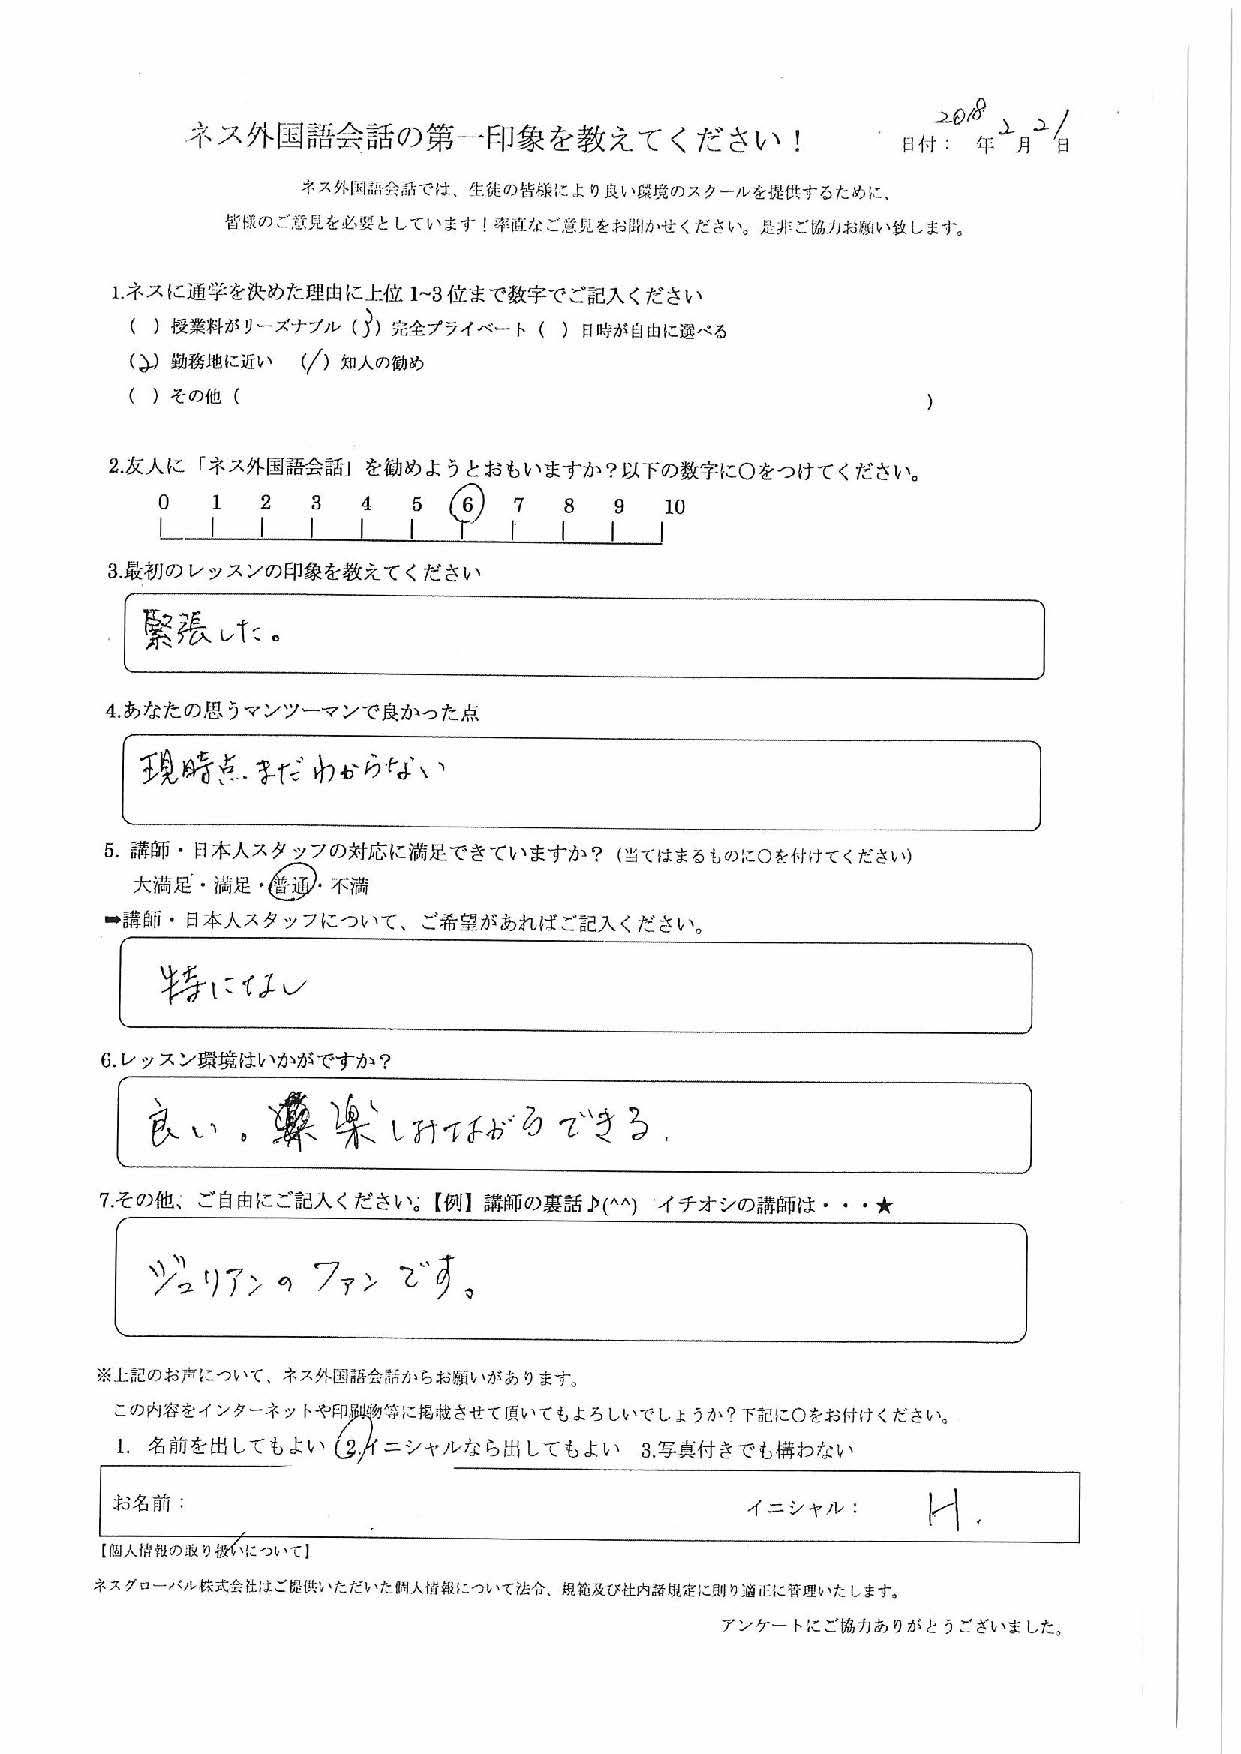 ネス外国語会話の第一印象を教えてください！
日付： 2018年 2月 21日
ネス外国語会話では、生徒の皆様により良い環境のスクールを提供するために、
皆様のご意見を必要としています！率直なご意見をお聞かせください。是非ご協力お願い致します。
1.ネスに通学を決めた理由に上位 1~3 位まで数字でご記入ください
（ ）授業料がリーズナブル（3）完全プライベート（ ）日時が自由に選べる
（2）勤務地に近い （1）知人の勧め
（ ）その他（ ）
2.友人に「ネス外国語会話」を勧めようとおもいますか？以下の数字に○をつけてください。
0 1 2 3 4 5 6 7 8 9 10
3.最初のレッスンの印象を教えてください
緊張した。
4.あなたの思うマンツーマンで良かった点
現時点.まだわからない
5. 講師・日本人スタッフの対応に満足できていますか？（当てはまるものに○を付けてください）
大満足・満足・普通・不満
➡講師・日本人スタッフについて、ご希望があればご記入ください。
特になし
6.レッスン環境はいかがですか？
良い。楽しみながらできる.
7.その他、ご自由にご記入ください。【例】講師の裏話♪(^^) イチオシの講師は・・・★
ジュリアンのファンです。
※上記のお声について、ネス外国語会話からお願いがあります。
この内容をインターネットや印刷物等に掲載させて頂いてもよろしいでしょうか？下記に○をお付けください。
1. 名前を出してもよい 2.イニシャルなら出してもよい 3.写真付きでも構わない
お名前： イニシャル： H.
【個人情報の取り扱いについて】
ネスグローバル株式会社はご提供いただいた個人情報について法令、規範及び社内諸規定に則り適正に管理いたします。
アンケートにご協力ありがとうございました。